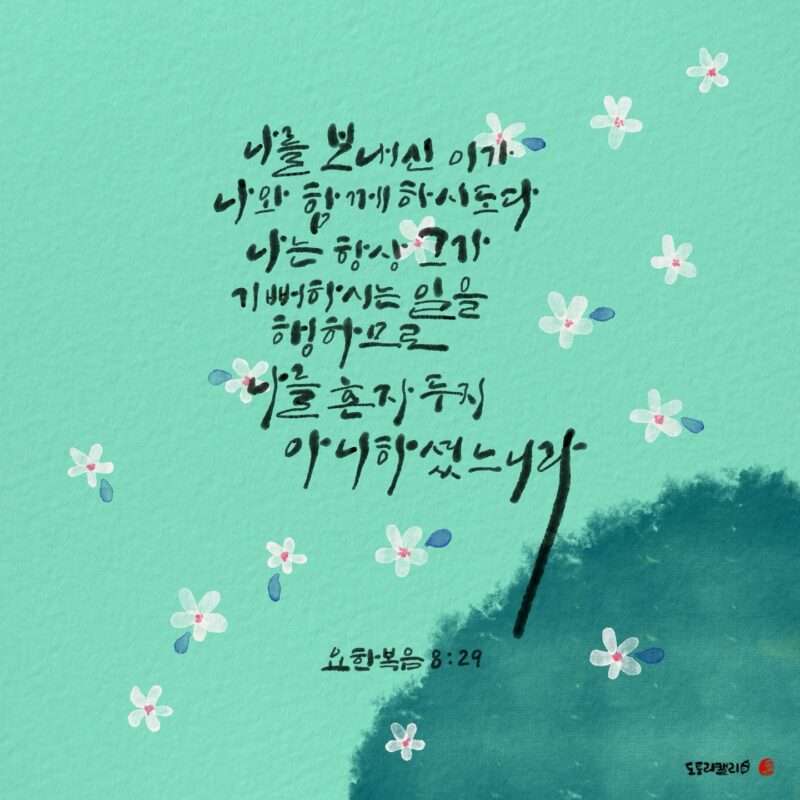 나를 보내신 이가
나와 함께하시도다
나는 항상 그가
기뻐하시는 일을
행하므로
나를 혼자 두지
아니하셨느니라
요한복음 8:29